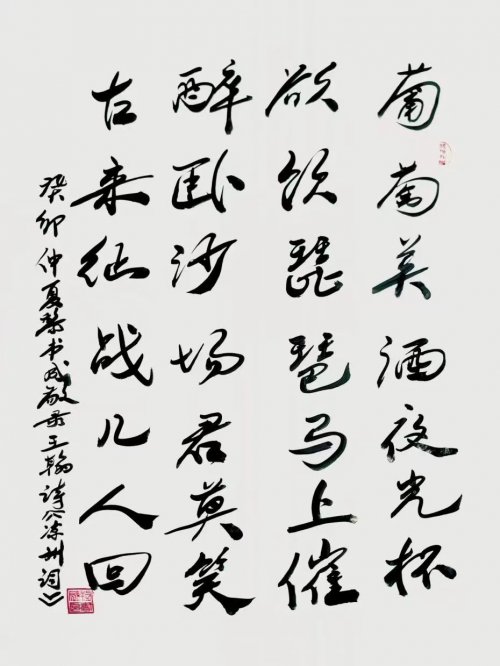 葡萄美酒夜光杯
欲饮琵琶马上催
醉卧沙场君莫笑
古来征战几人回
癸卯仲夏书敬录王翰诗《凉州词》